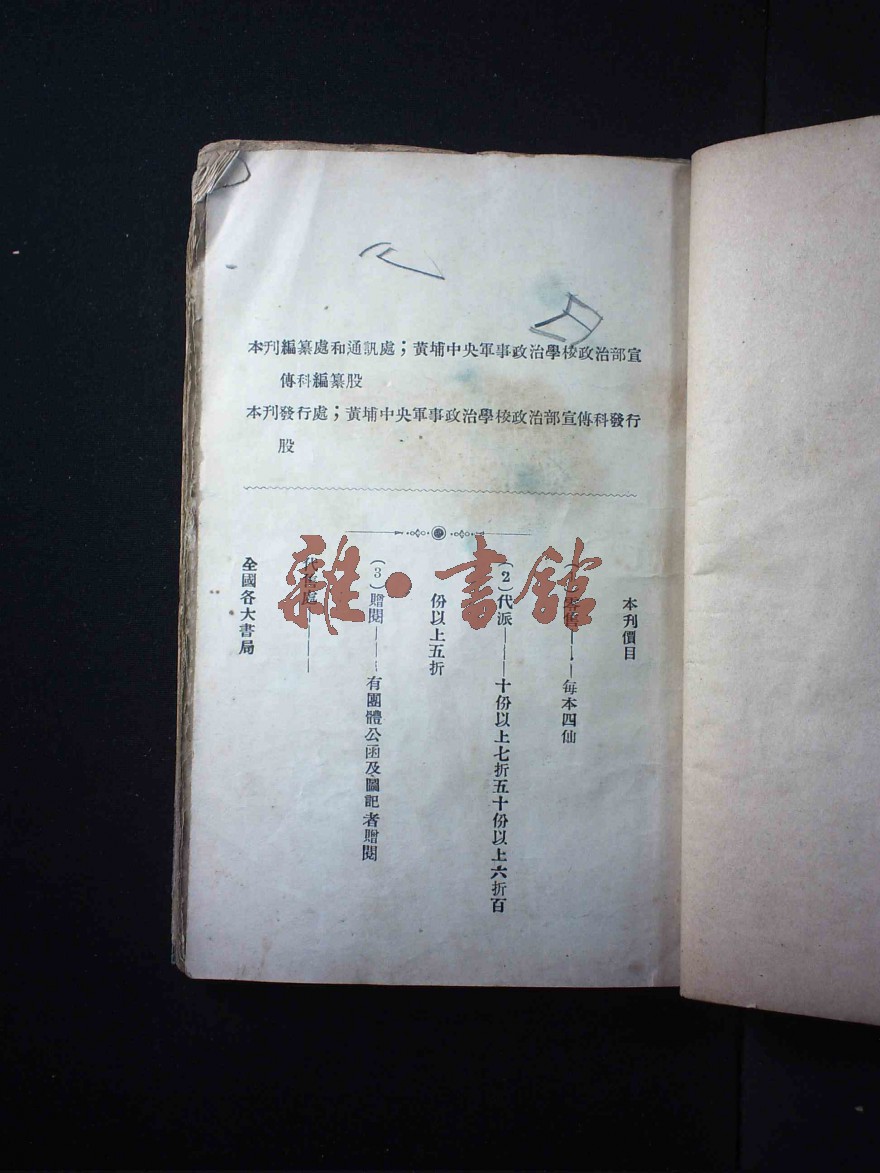 本刊編纂處和通訊處；黃埔中央軍事政治學校政治部宣
傳科編纂股
本刊發行處；黃埔中央軍事政治學校政治部宣傳科發行
股
本刊價目
零售——每本四仙
(2)代派——十份以上七折五十份以上六折百
份以上五折
(3)贈閱——有團體公函及圖記者贈閱
代售處——
全國各大書局
雜·書館